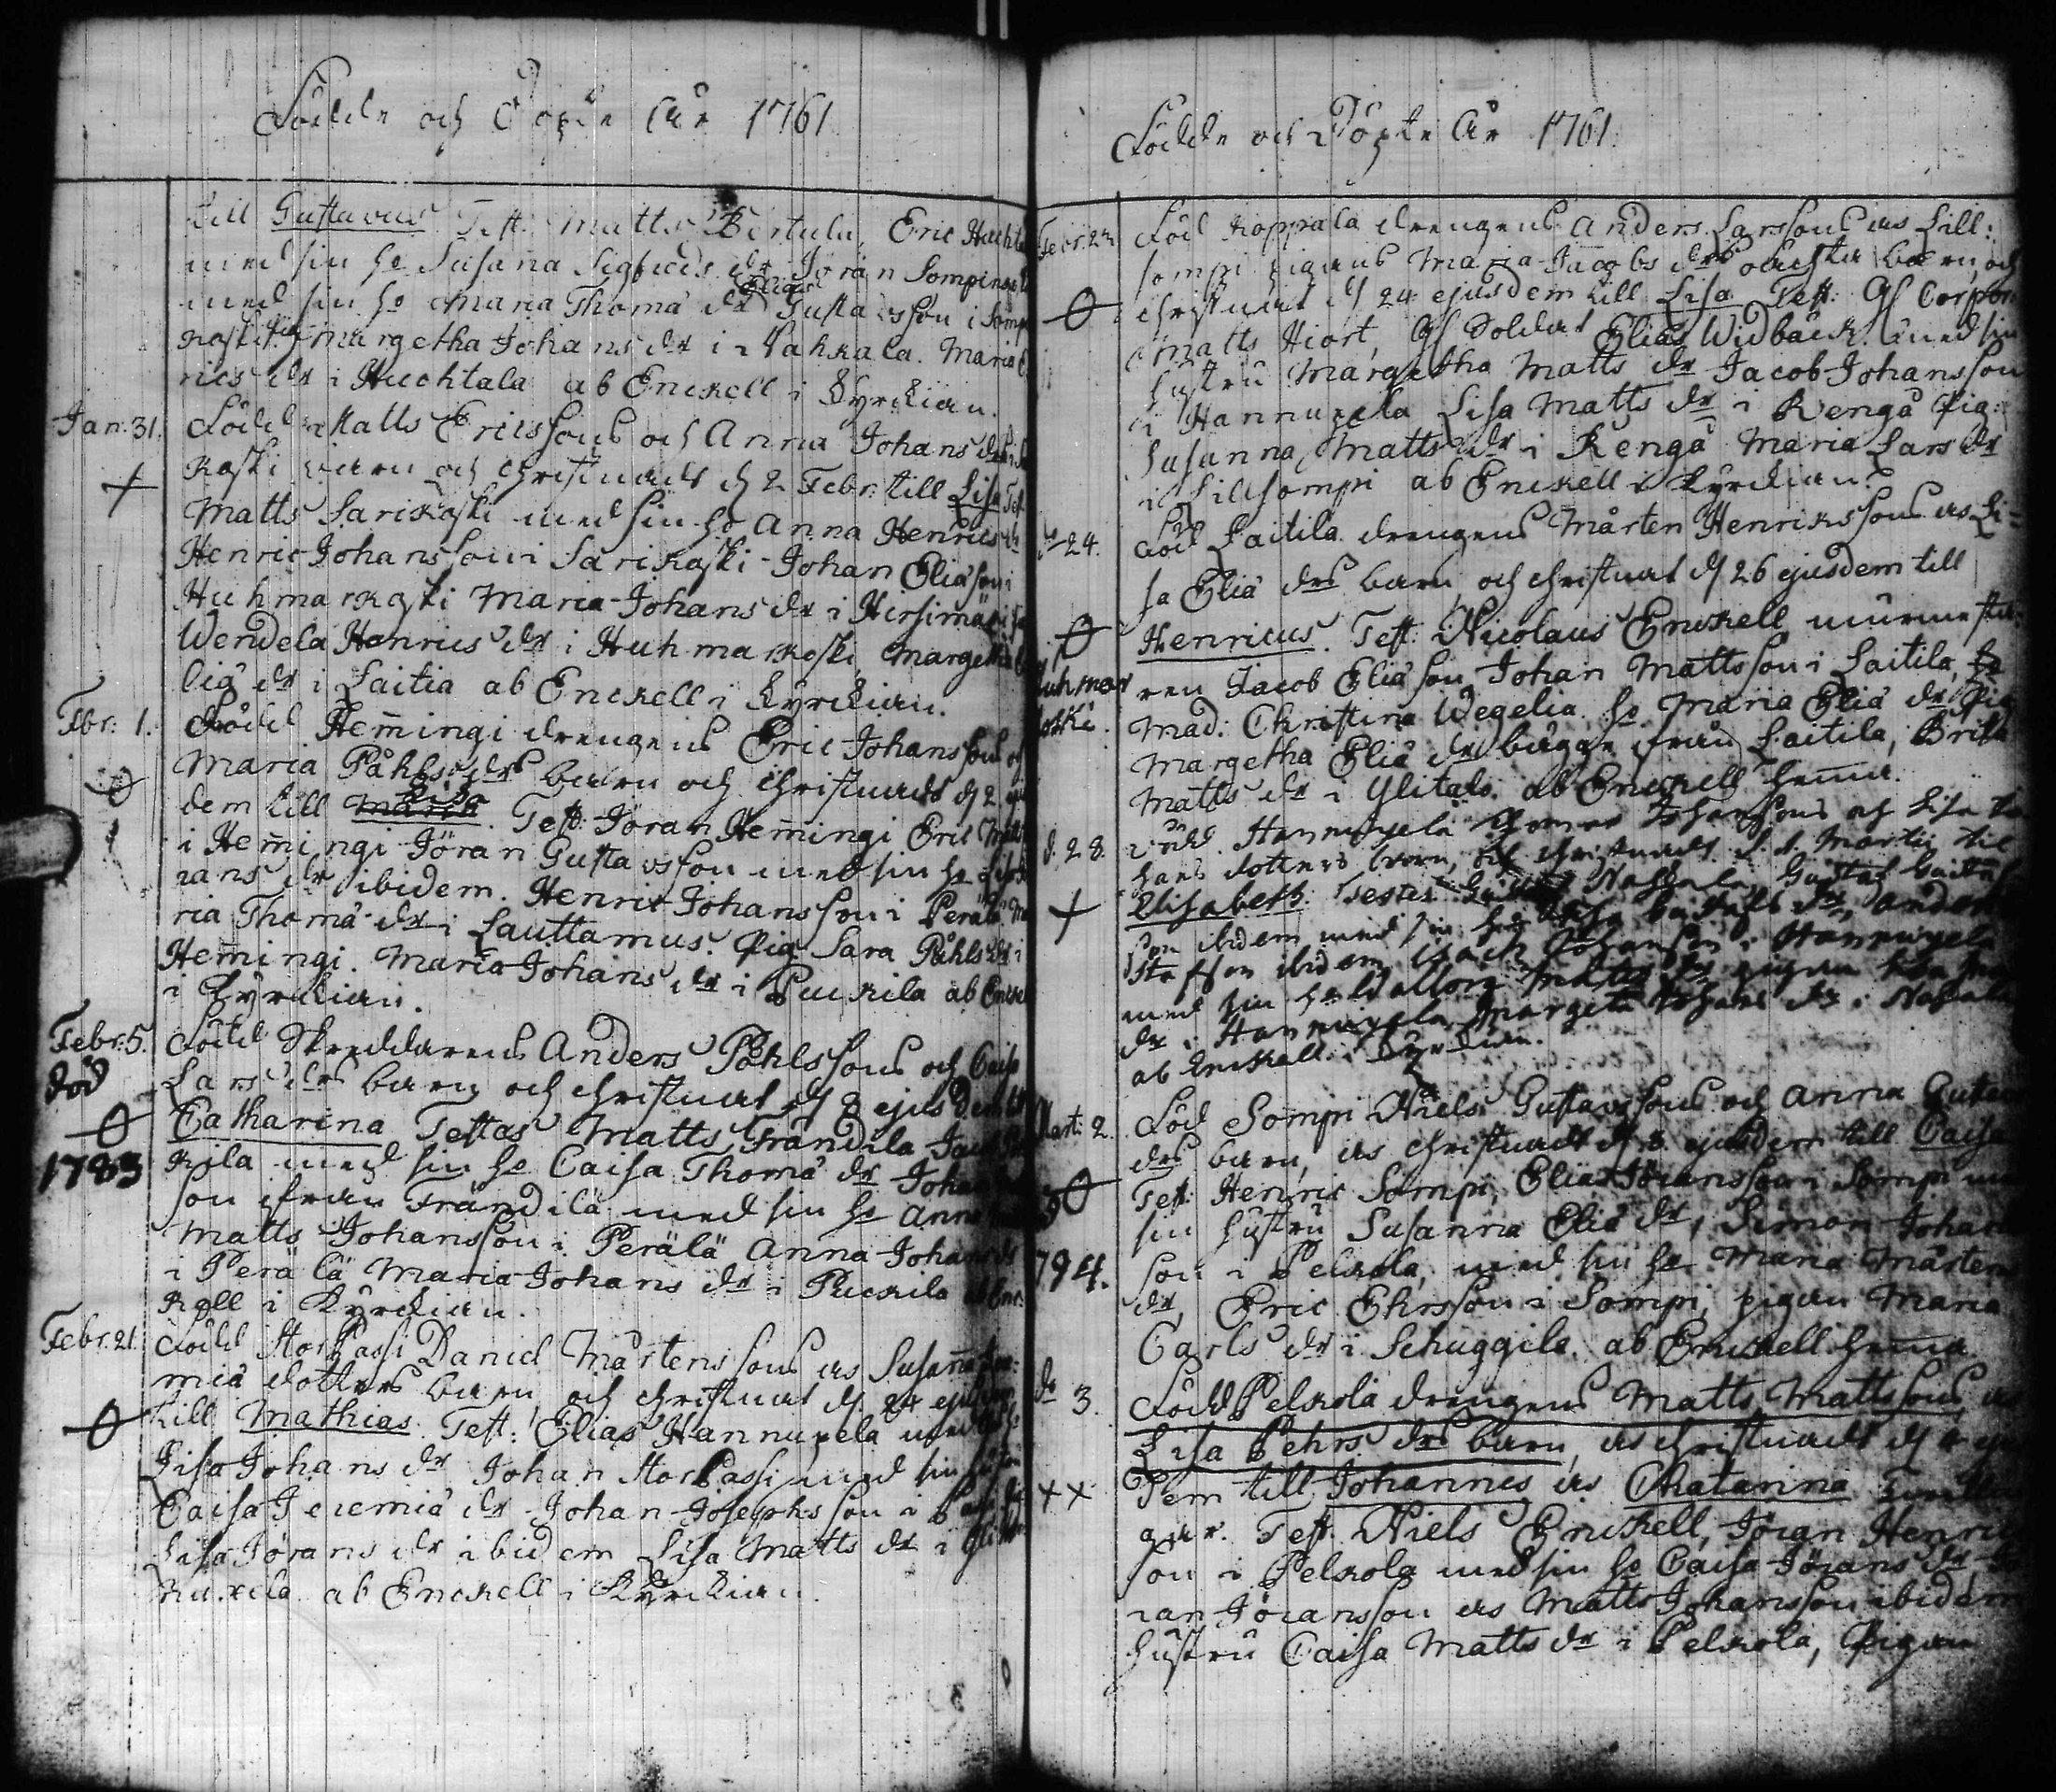 Födde och Döpte År 1761
till Gustavus Test: Matts Bertula, Eric Huchta
med sin ho Susana Sigfreds dr Jöran Sompinen
med sin ho Maria Thomæ dr Elias Gustavsson i Somp
Margetha Johans dr i Maria
rics dr i Huchtala ab Enckell i Kyrckian.
Jan: 31. Född Matts Ericssons och Anna Johans drs
koski barn och Christnades d 2 Febr: till Lisa Test
+ Matts Sarikoski med sin ho Anna Henrics dr
Henric Johansson i Sarikoski Johan Eliæson i
Huhmarkoski Maria Johans dr i Hirsimäki
Wendela Henrics dr i Huhmarkoski Margetha
dr i Laitia ab Enckell i Kyrckian.
Febr: 1. Född Hemingi drengens Eric Johanssons och
Maria Påhls drs barn och Christnades d 2
dem till Maria Lisa. Test: Jöran Hemingi Eric Matts
i Hemingi Jöran Gustavsson med sin ho Lisa
rans dr ibidem. Henric Johansson i Perälä
ria Thomæ dr i Lauttamus. Pig Sara Påhls dr i
Hemingi. Maria Johans dr i Puckila ab Enckell
i Kyrckian.
Febr: 5. Född Skreddarens Anders Påhlssons och Caisa
död Lars drs barn och Christnat d 8 ejusdem till
Catharina Testes Matts Frändilä Jac
1783 kila med sin ho Caisa Thomæ dr Johan
son ifrån Frändilä med sin ho Anna
Matts Johansson i Perälä Anna Johans dr
i Perälä Maria Johans dr i Puckila ab Enc
kell i Kyrckian.
Febr: 21. Född Storpassi Daniel Mårtenssons och Susanna Jere
miæ dotters barn och Christnat d 24 ejusdem
till Mathias. Test: Elias Hannuxela med
Lisa Johans dr Johan Storpassi med sin hustru
Caisa Jeremiæ dr Johan Josephsson i
Lisa Jörans dr ibidem Lisa Matts dr i
ab Enckell i Kyrckian.
Födde och Döpte År 1761.
Febr: 22. Föd Koppala drengens Anders Larssons och Lill:
sompi pigans Maria Jacobs drs oächta barn, och
Christnat d 24 ejusdem till Lisa Test: Corpor
Matts Hiort, Soldat Elias Widbäck med sin
hustru Margetha Matts dr Jacob Johansson
i Hannuxela Lisa Matts dr i Rengå Pig:
Susanna Matts dr i Rengå Maria Lars dr
i Lillsompi ab Enckell i Kyrckian.
d 24. Föd Laitila drengens Mårten Henrikssons och Li=
sa Eliæ drs barn och Christnat d 26 ejusdem till
Henricus. Test: Nicolaus Enckell
Huhmar
koski. ren Jacob Eliæson Johan Mattsson i Laitila,
Mad: Christina Wegelia ho Maria Eliæ dr Pig
Margetha Eliæ dr bägge ifrån Laitila, Brita
Matts dr i Ylitalo. ab Enckell hema.
d. 28. Född Hannuxela Thomas Johanssons och Lisa
hans dotters barn, och Christnades d. 1. Martii till
+ Elisabeth. Testes Gustaf Nassala, Gustaf Gustaf
son ibidem med sin ho Lisa Gustafs dr, Anders
Staffson ibidem Isach Johansson i Hannuxela
med sin ho Walborg Matts dr pigan
dr i Hannuxela Margeta Johans dr i Nassala
ab Enckell i Kyrckian.
Mart: 2. Föd Sompi Niels Gustavssons och Anna Gustavs
drs barn, och Christnades d 3 ejusdem till Caisa
Test: Henric Sompi, Elias Jöransson i Sompi med
sin hustru Susanna Eliæ dr, Simon Johans
794. son i Pelkola, med sin ho Maria Mårtens
dr, Eric Ehrsson i Sompi, pigan Maria
Carls dr i Schuggila. ab Enckell hema
d 3. Född Pelkola drengens Matts Mattssons och
Lisa Pehrs drs barn och Christnades d 4
++ dem till Johannes och Chatarina
gar. Test: Niels Enckell, Jöran Henric
son i Pelkola med sin ho Caisa Jörans dr
ran Jöransson och Matts Johansson ibidem
hustru Caisa Matts dr i Pelkola, Pigan